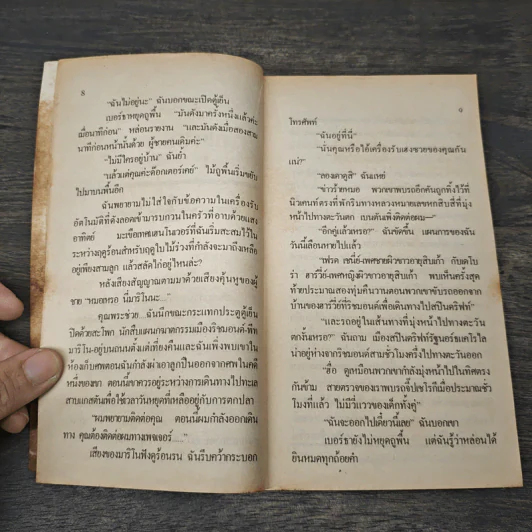 ๘
"ฉันไม่อยู่นะ" ฉันบอกขณะเปิดตู้เย็น
เบอร์ธาหยุดถูพื้น "มันดังมาครั้งหนึ่งแล้วค่ะ
เมื่อนาทีก่อน" หล่อนรายงาน "และมันดังเมื่อสองสาม
นาทีก่อนหน้านั้นด้วย ผู้ชายคนเดิมค่ะ"
"ไม่มีใครอยู่บ้าน" ฉันย้ำ
"แล้วแต่คุณค่ะด๊อกเตอร์เคย์" ไม้ถูพื้นเริ่มขยับ
ไปมาบนพื้นอีก
ฉันพยายามไม่ใส่ใจกับข้อความในเครื่องรับ
อัตโนมัติที่ดังลอดเข้ามารบกวนในครัวที่อาบด้วยแสง
อาทิตย์ มะเขือเทศแฮนโนเวอร์ที่ฉันเริ่มสะสมไว้ใน
ระหว่างฤดูร้อนสำหรับฤดูใบไม้ร่วงที่กำลังจะมาถึงเหลือ
อยู่เพียงสามลูก แล้วสลัดไก่อยู่ไหนล่ะ?
หลังเสียงสัญญาณตามมาด้วยเสียงคุ้นหูของผู้
ชาย "หมอครอ นี่มาริโนนะ..."
คุณพระช่วย ฉันนึกขณะกระแทกประตูตู้เย็น
ปิดด้วยสะโพก นักสืบแผนกฆาตกรรมเมืองริชมอนด์-พีท
มาริโน-อยู่บนถนนตั้งแต่เที่ยงคืนและฉันเพิ่งพบเขาใน
ห้องเก็บศพตอนฉันกำลังผ่าเอาลูกปืนออกจากศพในคดี
หนึ่งของเขา ตอนนี้เขาควรอยู่ระหว่างการเดินทางไปทะเล
สาบแกสตันเพื่อใช้เวลาวันหยุดที่เหลืออยู่กับการตกปลา
"ผมพยายามติดต่อคุณ ตอนนี้ผมกำลังออกเดิน
ทาง คุณต้องติดต่อผมทางเพจเจอร์....."
เสียงของมาริโนฟังดูร้อนรน ฉันรีบคว้ากระบอก
๙
โทรศัพท์
"ฉันอยู่ที่นี่"
"นั่นคุณหรือไอ้เครื่องรับเฮงซวยของคุณกัน
แน่?"
"ลองเดาดูสิ" ฉันเหย่
"ข่าวร้ายหมอ พวกเขาพบรถอีกคันถูกทิ้งไว้ที่
นิวเคนท์ตรงที่พักริมทางหลวงหมายเลขหกสิบสี่ที่มุ่ง
หน้าไปทางตะวันตก เบนตันเพิ่งติดต่อผม—"
"อีกคู่แล้วหรอ?" ฉันขัดขึ้น แผนการของฉัน
วันนี้เลื่อนหายไปแล้ว
"เฟรด เชนี่ย์-เพศชายผิวขาวอายุสิบเก้า กับเดโบ
ร่า ฮาร์วี่ย์-เพศหญิงผิวขาวอายุสิบเก้า พบเห็นครั้งสุด
ท้ายประมาณสองทุ่มคืนวานตอนพวกเขาขับรถออกจาก
บ้านของฮาร์วี่ย์ที่ริชมอนด์เพื่อเดินทางไปสปินดริฟท์"
"และรถอยู่ในเส้นทางที่มุ่งหน้าไปทางตะวัน
ตกงั้นหรอ?" ฉันถาม เมืองสปินดริฟท์รัฐนอร์ธแคโรไล
น่าอยู่ห่างจากริชมอนด์สามชั่วโมงครึ่งไปทางตะวันออก
"ฮื่อ ดูเหมือนพวกเขากำลังมุ่งหน้าไปในทิศตรง
กันข้าม สายตรวจของเราพบรถจี๊ปเชโรกีเมื่อประมาณชั่ว
โมงที่แล้ว ไม่มีวี่แววของเด็กทั้งคู่"
"ฉันจะออกไปเดี๋ยวนี้เลย" ฉันบอกเขา
เบอร์ธายังไม่หยุดถูพื้น แต่ฉันรู้ว่าหล่อนได้
ยินหมดทุกถ้อยคำ